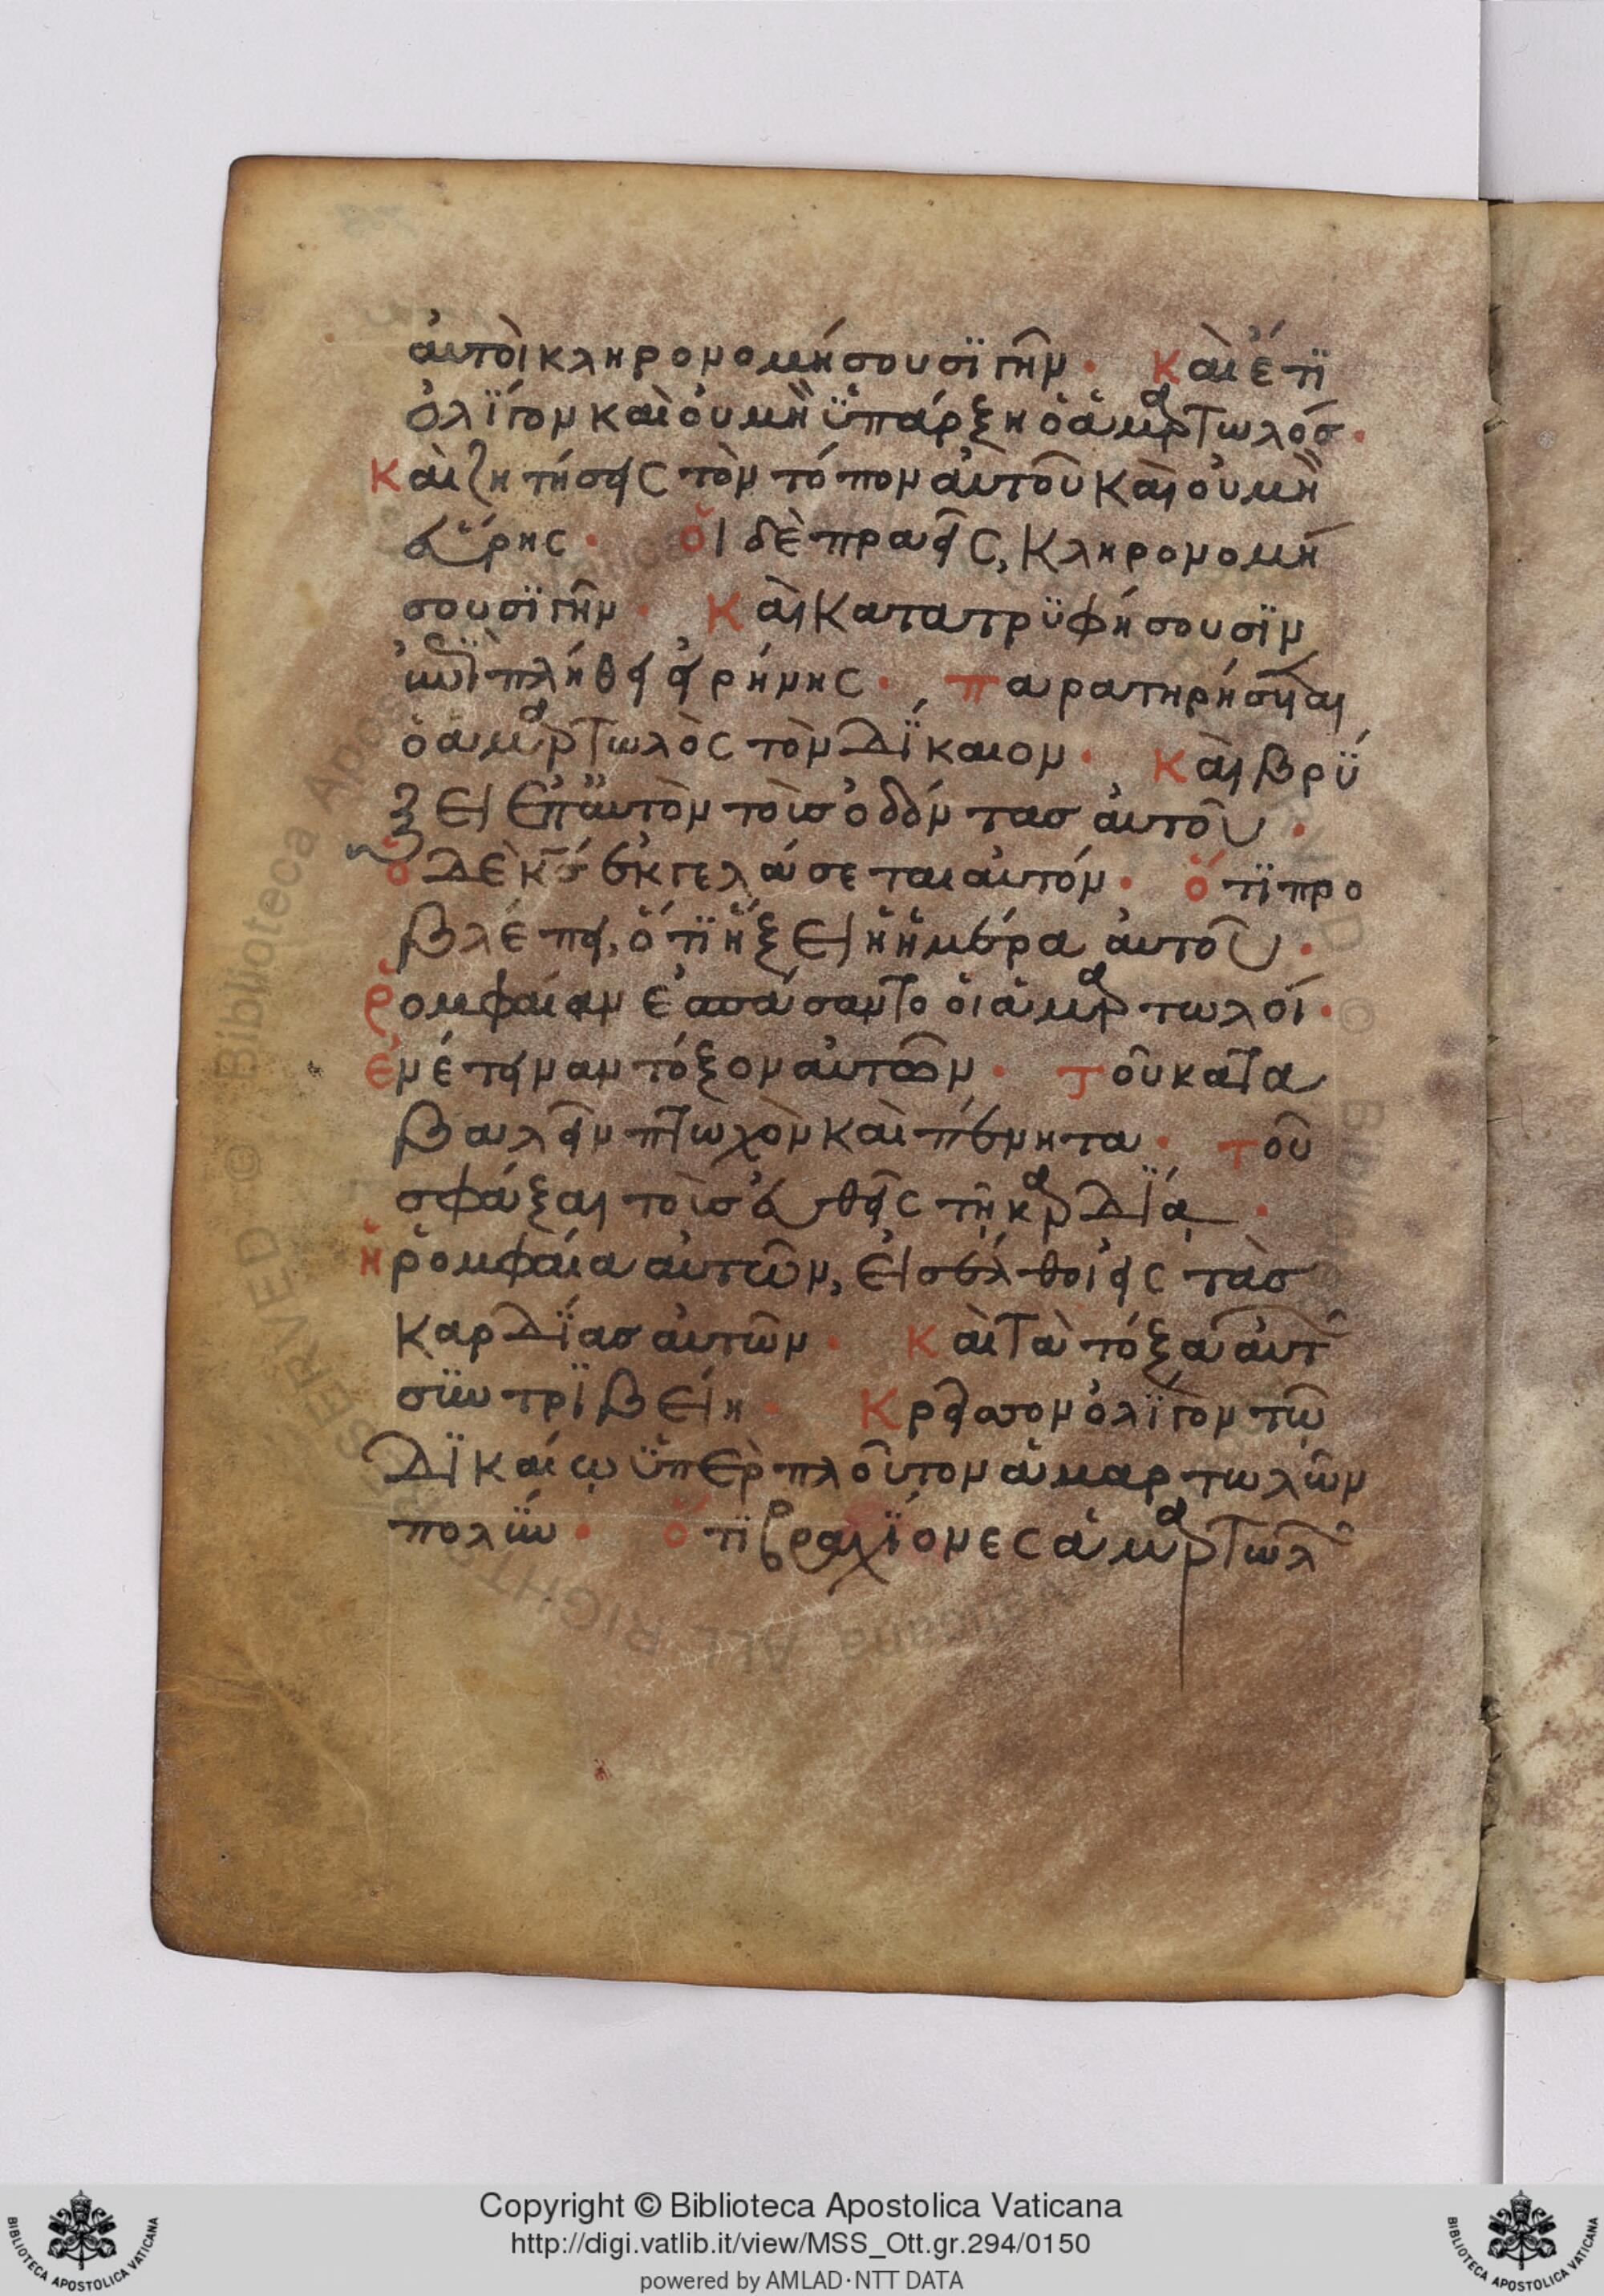 ἀυτοὶ κληρονομήσουσϊ γῆν· Κὰι ἔτϊ
ὀλΐγον καὶ ὀυ μὴ ϋπάρξη ὁ ἁμαρτωλόσ·
Κὰι ζητήσεις τὸν τόπον ἀυτοῦ κὰι ὀυ μὴ
εὕρης· ὅι δὲ πραεῖς, κληρονομή
σουσϊ γῆν· Κὰι κατατρϋφήσουσϊν
ἐπὶ πλήθει εἰρήνης· παρατηρήσεται
ὁ ἁμαρτωλὸς τὸν δΐκαιον· Κὰι βρϋ
ξει ἐπ' ἀυτὸν τοὺσ ὀδόντασ ἀυτοῦ·
ὁ δὲ κς ἐκγελάσεται ἀυτόν· ὅτϊ προ
βλέπει, ὅτϊ ἥξει ἡ ἡμέρα ἀυτοῦ·
ῥομφαίαν ἐσπάσαντο ὁι ἁμαρτωλόι·
ἐνέτειναν τόξον ἀυτῶν· τοῦ κατα
βαλεῖν πτωχὸν κὰι πένητα· τοῦ
σφάξαι τοὺσ εὐθεῖς τῆ καρδΐα·
ἡ ῥομφαία ἀυτῶν, εἰσέλθοι εἰς τὰσ
καρδΐασ ἀυτῶν· Κὰι τὰ τόξα ἀυτῶν
σϋντρϊβείη· Κρεῖσσον ὀλΐγον τῶ
δϊκαίω ϋπὲρ πλοῦτον ἁμαρτωλῶν
πολϋν· ὅτϊ βραχΐονες ἁμαρτωλῶν
Copyright © Biblioteca Apostolica Vaticana
http://digi.vatlib.it/view/MSS_Ott.gr.294/0150
powered by AMLAD·NTT DATA
BIBLIOTECA APOSTOLICA VATICANA
BIBLIOTECA APOSTOLICA VATICANA